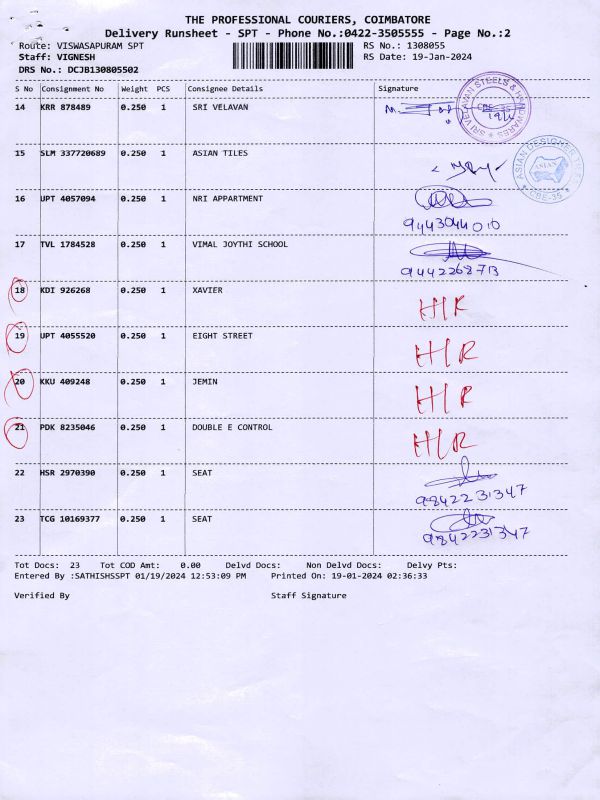 THE PROFESSIONAL COURIERS, COIMBATORE
Delivery Runsheet - SPT - Phone No.:0422-3505555 - Page No.:2
Route: VISWASAPURAM SPT RS No.: 1308055
Staff: VIGNESH RS Date: 19-Jan-2024
DRS No.: DCJB130805502
S No Consignment No Weight PCS Consignee Details Signature
14 KRR 878489 0.250 1 SRI VELAVAN
SRI VELAVAN STEELS & HARDWARES CBE-35
15 SLM 337720689 0.250 1 ASIAN TILES
ASIAN DESIGNER ASIAN CBE-35
16 UPT 4057094 0.250 1 NRI APPARTMENT
9443044010
17 TVL 1784528 0.250 1 VIMAL JOYTHI SCHOOL
9442268713
18 KDI 926268 0.250 1 XAVIER H/R
19 UPT 4055520 0.250 1 EIGHT STREET H/R
20 KKU 409248 0.250 1 JEMIN H/R
21 PDK 8235046 0.250 1 DOUBLE E CONTROL H/R
22 HSR 2970390 0.250 1 SEAT
9842231347
23 TCG 10169377 0.250 1 SEAT
9842231347
Tot Docs: 23 Tot COD Amt: 0.00 Delvd Docs: Non Delvd Docs: Delvy Pts:
Entered By :SATHISHSSPT 01/19/2024 12:53:09 PM Printed On: 19-01-2024 02:36:33
Verified By Staff Signature